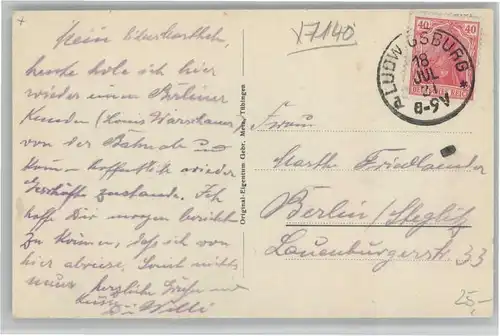 Mein liberbartchen,
heute hole ich hier
wieder einen Berliner
Kunden (Louis Warschauer)
von der Bahn ab und
komm hoffentlich wieder
Geschäfte zustande. Ich
hoffe Dir morgen berichten
zu können, daß ich von
hier abreise. Sonst nichts
neues herzliche Grüße und
Küsse Willi
V7140
40 40
LUDWIGSBURG
18
JUL
21
8-9V
Original-Eigentum Gebr. Metz, Tübingen
Frau
Marthe Friedlaender
Berlin/Steglitz
Lauenburgerstr 33
25,-